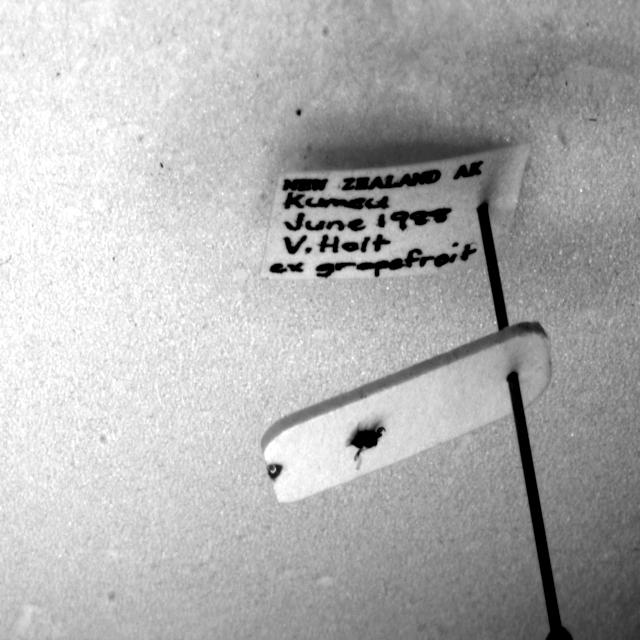 NEW ZEALAND AK
Kumeu
June 1985
V. Holt
ex grapefruit